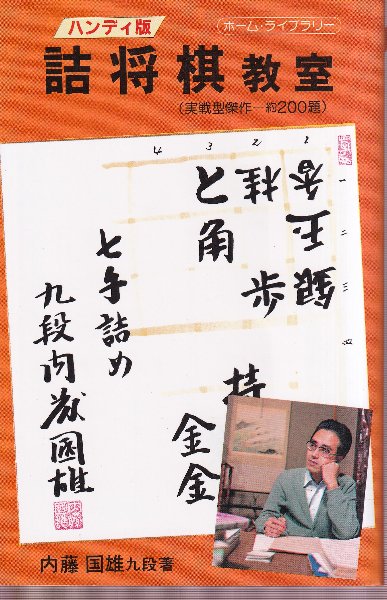 ハンディ版
ホーム・ライブラリー
詰将棋教室
(実戦型傑作―約200題)
4 3 2 1
と 桂 香
角 王
歩 銀
一
二
三
四
持
金
金
七手詰め
九段内藤國雄
内藤国雄九段著